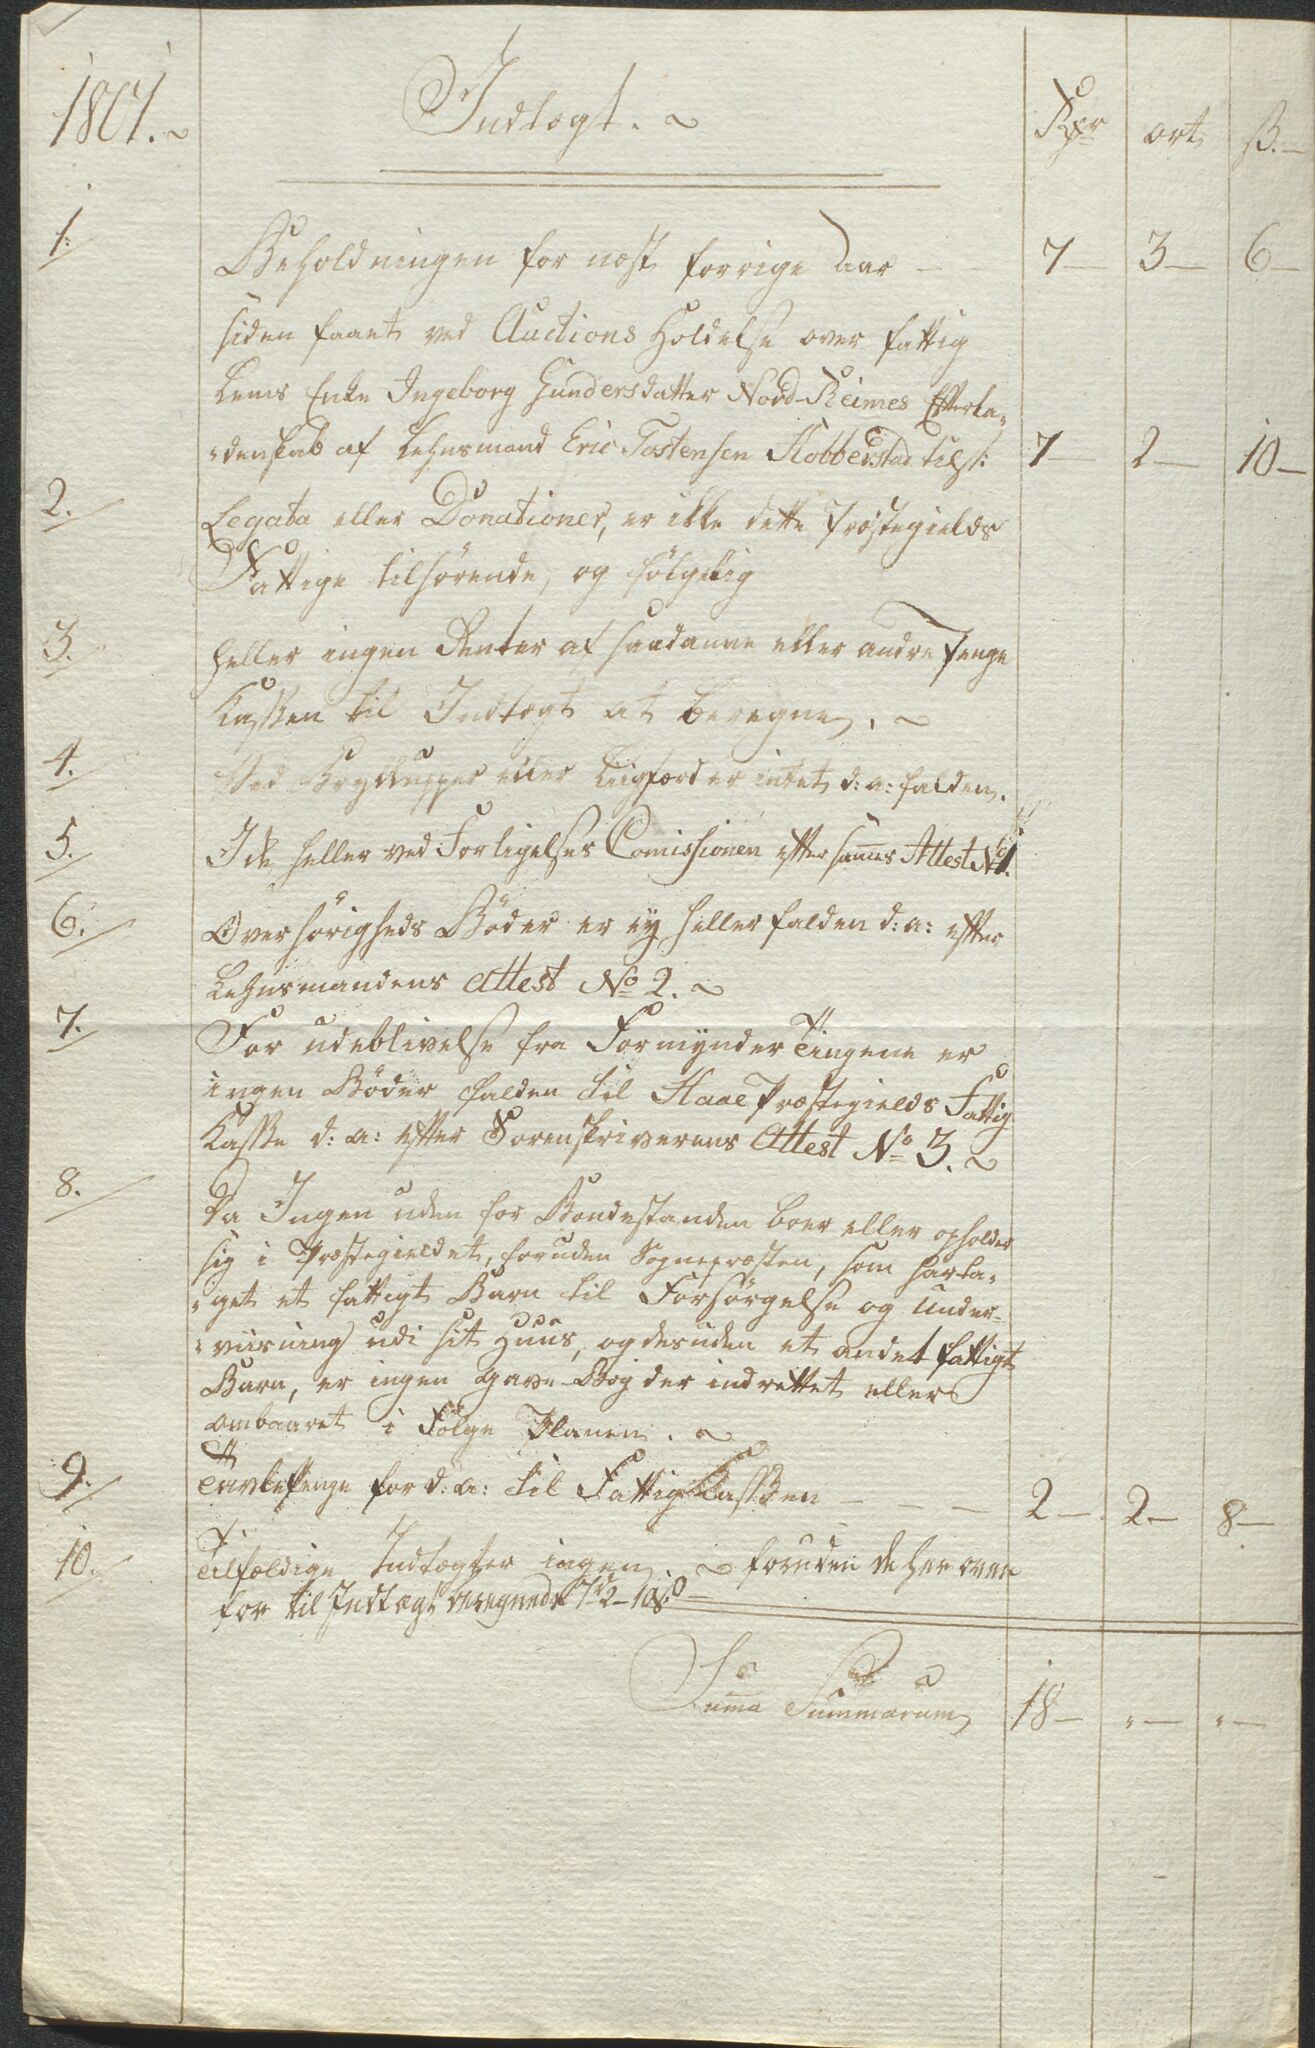 1801.
Indtægt.
Rdr ort ß.
1. Beholdningen for næst forrige Aar 7 3 6
siden faaet ved Auctions Holdelse over fattig
Lems Enke Ingeborg Gundersdatter Nord-Reimes Efterla-
-denskab af Lehnsmand Eric Tostensen Hobberstad tils: 7 2 10
2. Legata eller Donationer, er ikke dette Præstegields
Fattige tilhörende, og fölgelig
3. heller ingen Renter af saadanne eller andre Penge
Kassen til Indtægt at beregne.
4. Ved Brylluper eller Liigfærd er intet d: a: falden.
5. Ick heller ved Forligelses Comissionen efter sammes Attest No 1.
6. Overhörigheds Böder er ey heller falden d: a: efter
Lehnsmandens Attest No 2.
7. For udeblivelse fra Formynder Tingene er
ingen Böder falden til Haae Præstegields Fattig
Kasse d: a: efter Sorenskriverens Attest No 3.
8. Da Ingen uden for Bondestanden boer eller opholder
sig i Præstegieldet, foruden Sognepræsten, som har ta-
-get et fattigt Barn til Forsörgelse og Under-
-viisning udi sit Huus, og desuden et andet fattigt
Barn, er ingen Gave-Bog der indrettet eller
ombaaret i Fölge Planen.
9. Tavlepenge for d: a: til Fattig Kassen 2 2 8
10. Tilfældige Indtægter ingen foruden de her oven
for til Indtægt beregnede 7 - 2 - 10 ß
Suma Summarum 18 " "